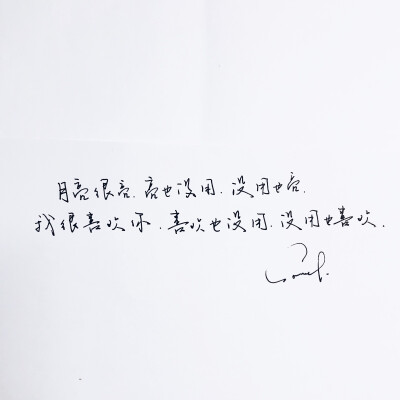 月亮很亮.亮也没用.没用也亮.
我很喜欢你.喜欢也没用.没用也喜欢.